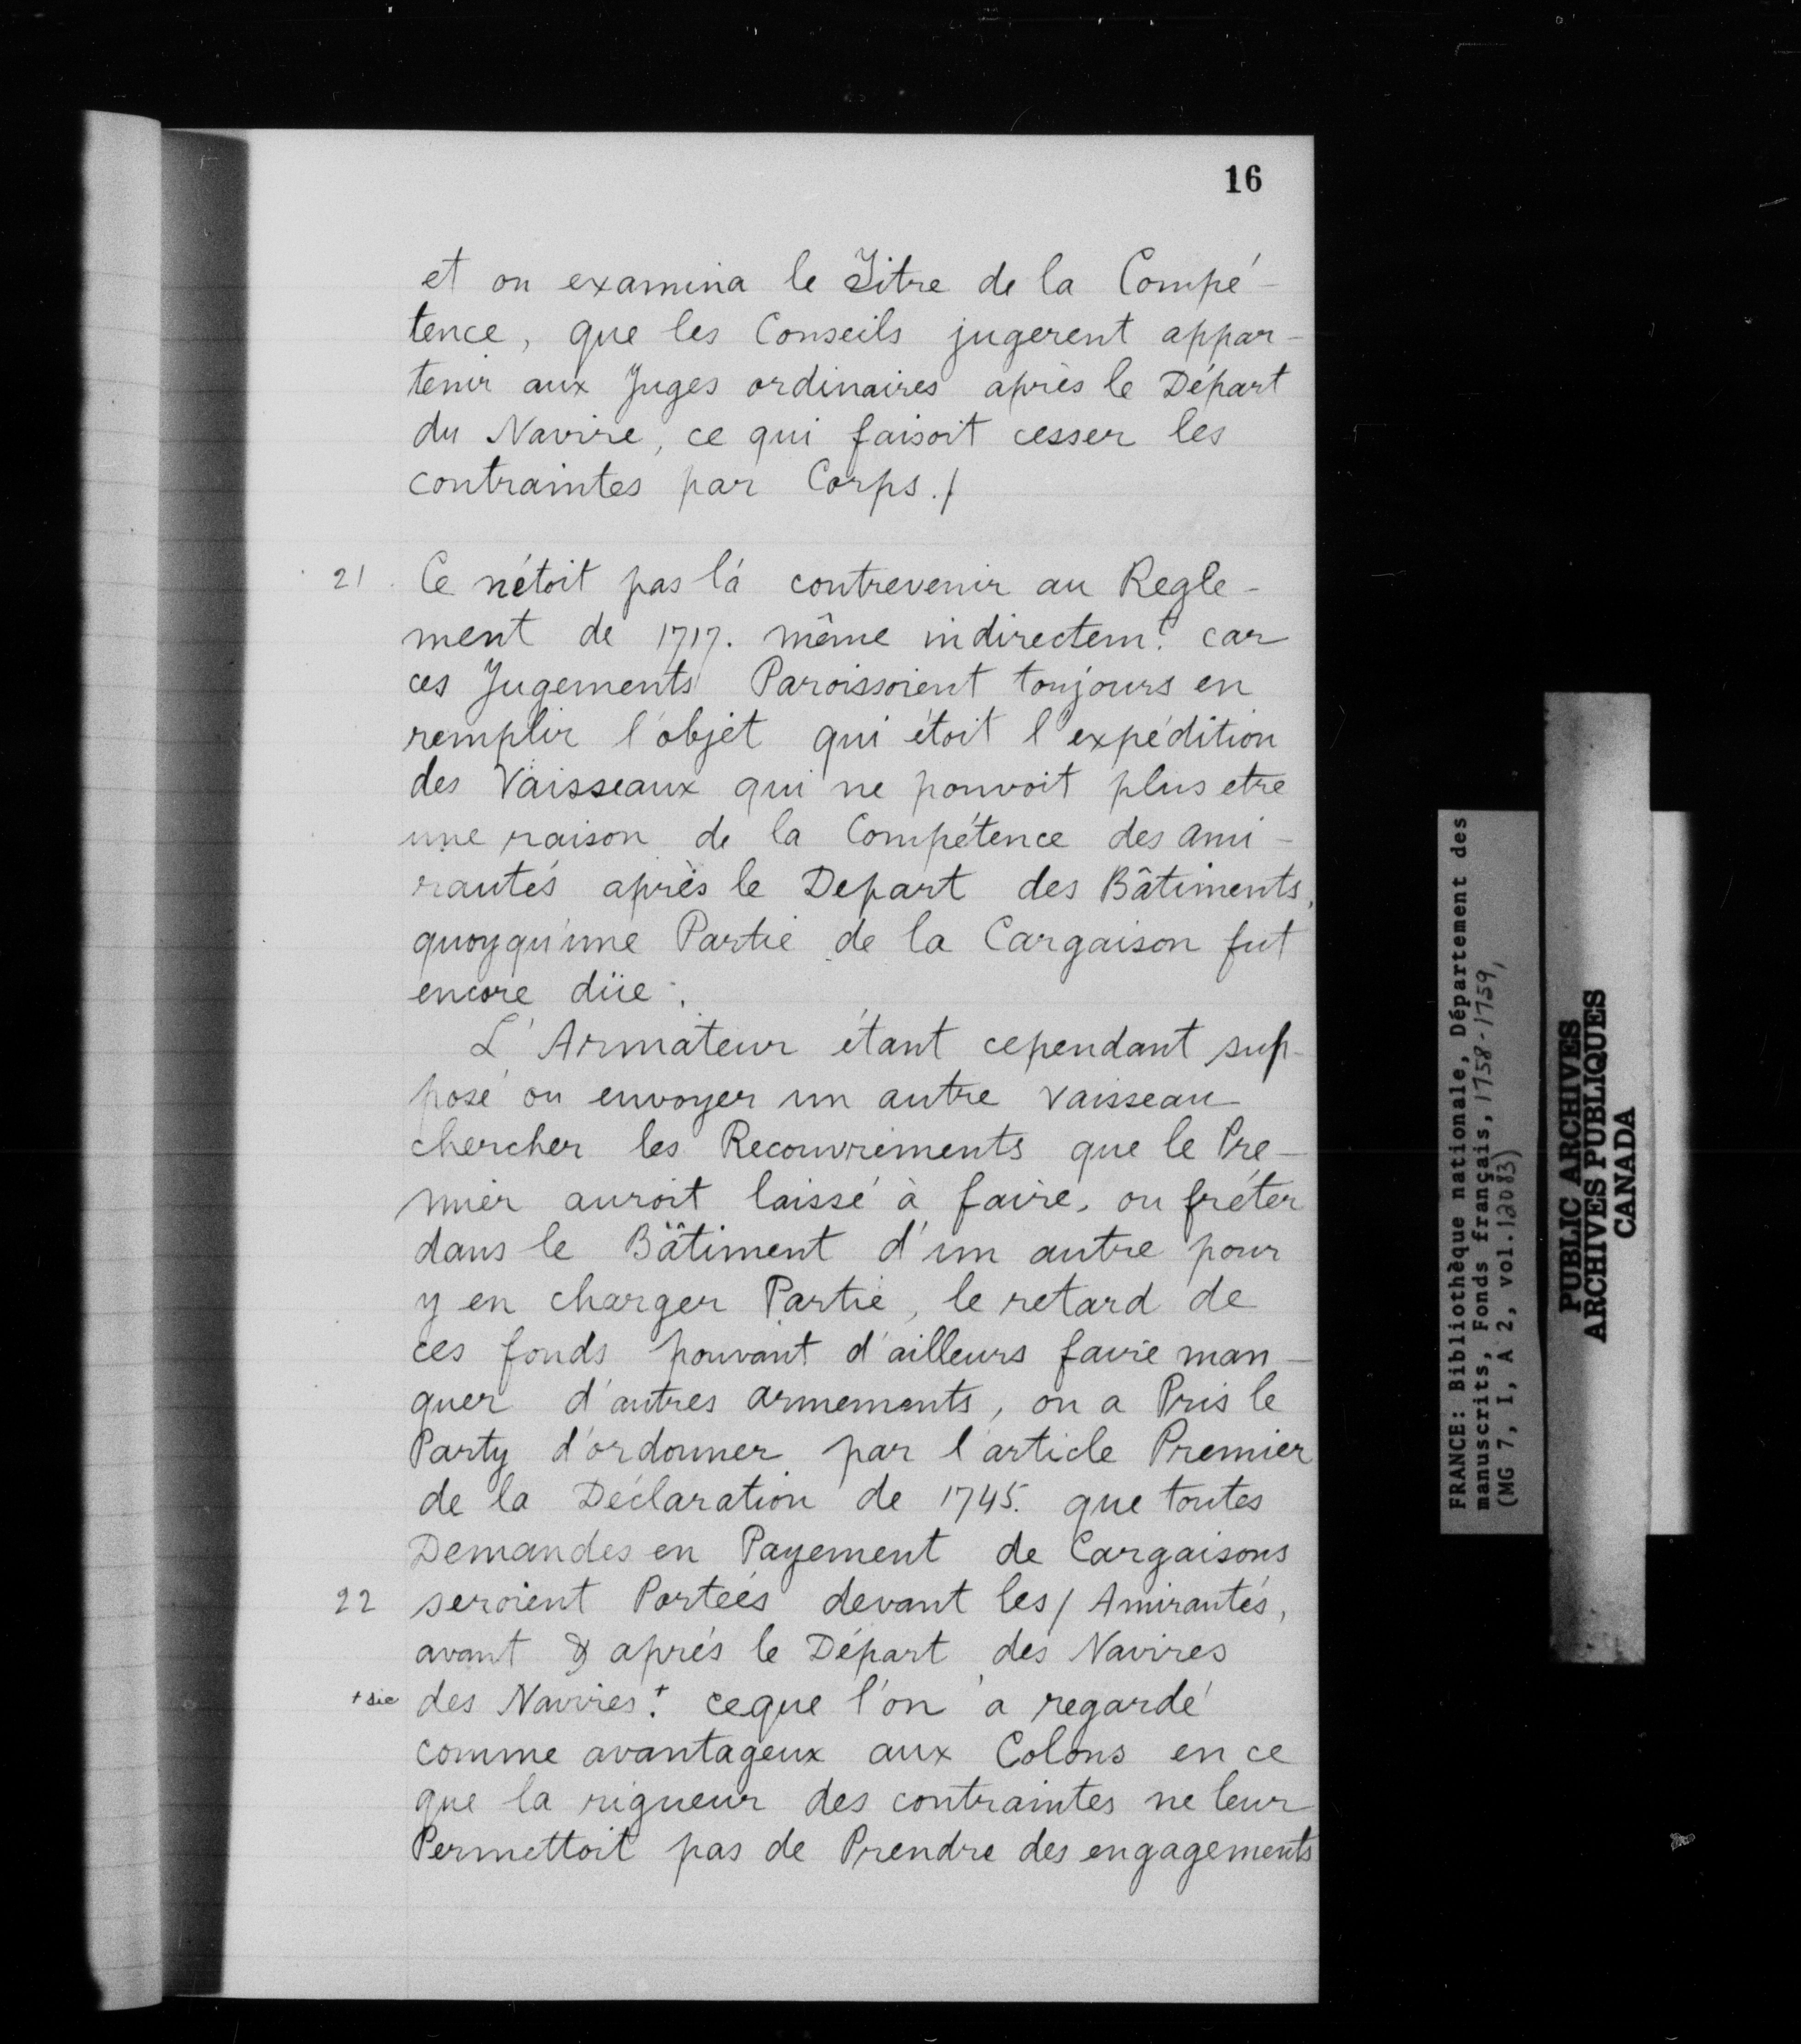 16
et on examina le Titre de la Compé-
tence, que les Conseils jugerent appar-
tenir aux Juges ordinaires après le Départ
du Navire, ce qui faisoit cesser les
contraintes par Corps./
21. Ce n'étoit pas là contrevenir au Regle-
ment de 1717. même indirectemt. car
ces Jugements Paroissoient toujours en
remplir l'objet qui étoit l'expédition
des Vaisseaux qui ne pouvoit plus etre
une raison de la Compétence des ami-
rautés après le Depart des Bâtiments,
quoyqu'une Partie de la Cargaison fut
encore düe.
L'Armateur étant cependant sup-
posé ou envoyer un autre vaisseau
chercher les Recouvrements que le Pre-
mier auroit laissé à faire, ou fréter
dans le Bâtiment d'un autre pour
y en charger Partie, le retard de
ces fonds pouvant d'ailleurs faire man-
quer d'autres armements, on a Pris le
Party d'ordonner par l'article Premier
de la Déclaration de 1745. que toutes
Demandes en Payement de Cargaisons
22 seroient Portées devant les / Amirautés,
avant & après le Départ des Navires
+sic des Navires.+ ceque l'on a regardé
comme avantageux aux Colons en ce
que la rigueur des contraintes ne leur
Permettoit pas de Prendre des engagements
FRANCE: Bibliothèque nationale, Département des
manuscrits, Fonds français, 1758-1759,
(MG 7, I, A 2, vol. 12083)
PUBLIC ARCHIVES
ARCHIVES PUBLIQUES
CANADA